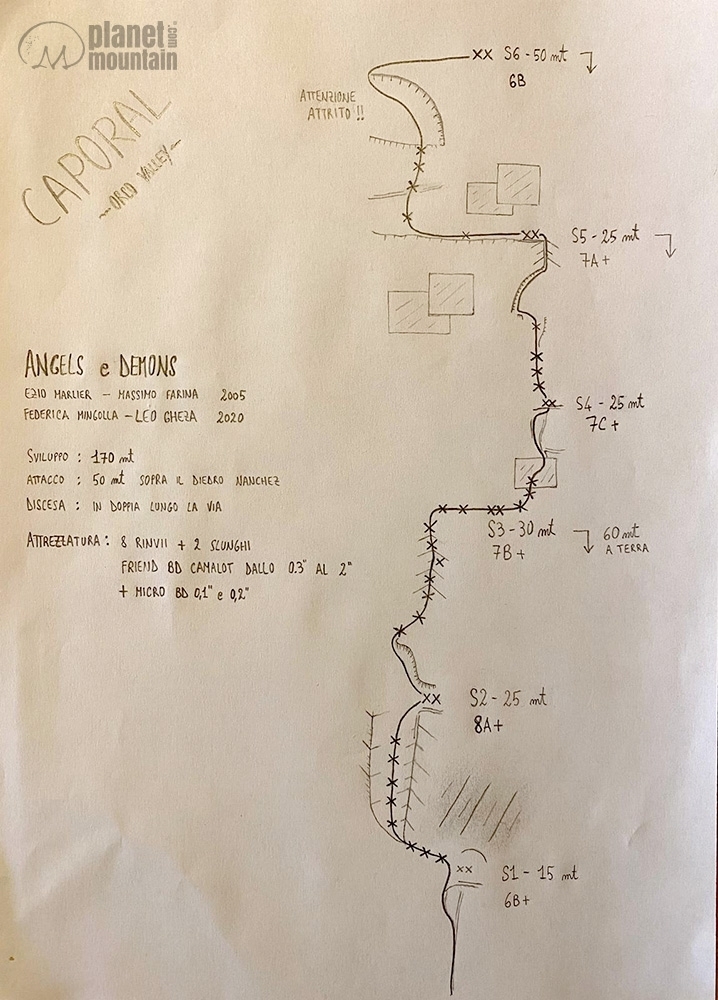 planet
mountain
.com
CAPORAL
~ORCO VALLEY~
ANGELS e DEMONS
EZIO MARLIER – MASSIMO FARINA 2005
FEDERICA MINGOLLA – LEO GHEZA 2020
SVILUPPO : 170 mt
ATTACCO : 50 mt SOPRA IL DIEDRO NANCHEZ
DISCESA : IN DOPPIA LUNGO LA VIA
ATTREZZATURA : 8 RINVII + 2 SLUNGHI
FRIEND BD CAMALOT DALLO 0.3" AL 2"
+ MICRO BD 0,1" e 0,2"
S6 - 50 mt
6B
ATTENZIONE
ATTRITO !!
S5 - 25 mt
7A+
S4 - 25 mt
7C+
S3 - 30 mt
7B+
60 mt
A TERRA
S2 - 25 mt
8A+
S1 - 15 mt
6B+